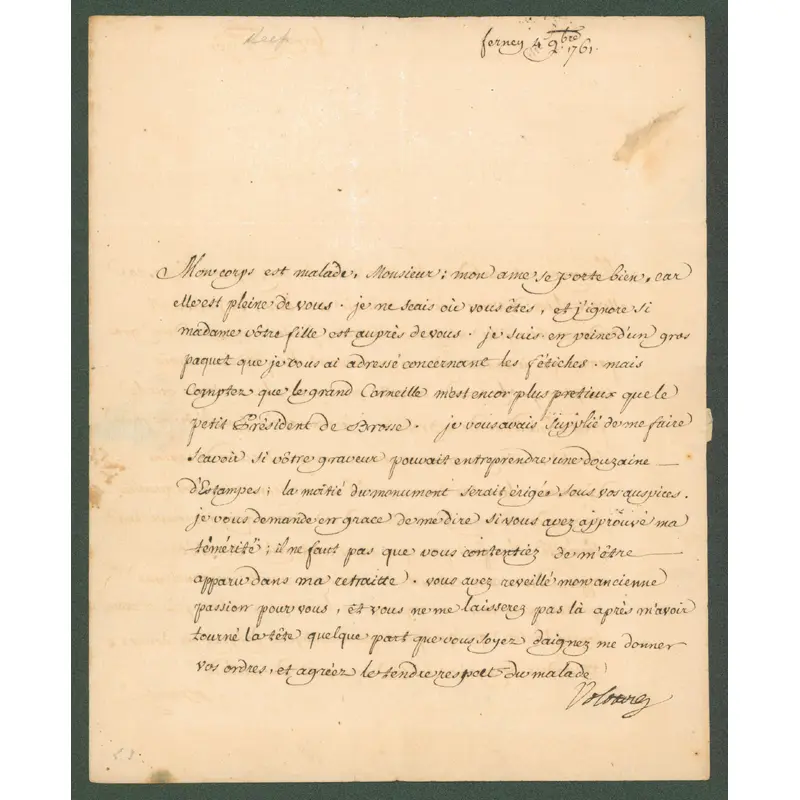 ferney 4 9bre 1761.
Mon corps est malade, Monsieur; mon ame se porte bien, car
elle est pleine de vous. je ne scais où vous êtes, et j'ignore si
madame vôtre fille est auprès de vous. je suis en peine d'un gros
paquet que je vous ai adressé concernant les fétiches. mais
comptez que le grand Corneille m'est encor plus pretieux que le
petit Président de Brosse. je vous avais supplié de me faire
scavoir si vôtre graveur pouvait entreprendre une douzaine
d'Estampes; la moitié du monument serait érigée sous vos auspices.
je vous demande en grace de me dire si vous avez approuvé ma
témérité; il ne faut pas que vous contentiez de m'être
apparu dans ma retraitte. vous avez reveillé mon ancienne
passion pour vous, et vous ne me laisserez pas là après m'avoir
tourné la tête quelque part que vous soyez daignez me donner
vos ordres, et agréez le tendre respect du malade
Voltaire